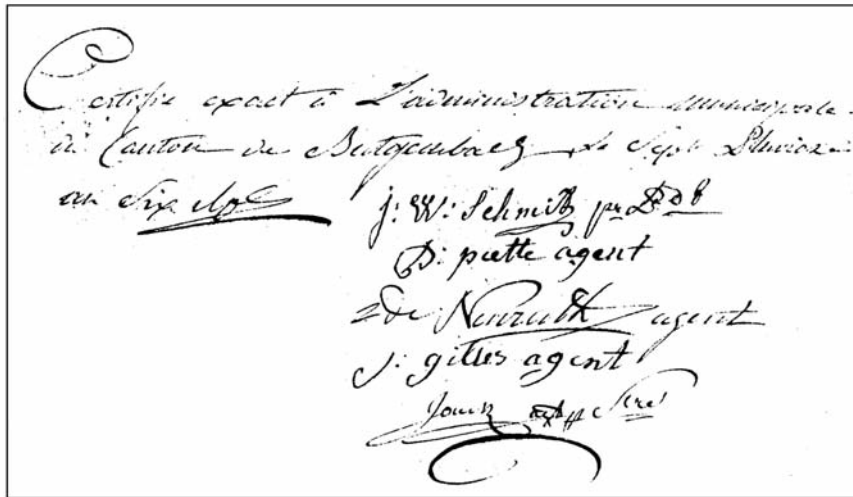 Certifié exact à L'administration municipale
du Canton de Butgenbach le Sept Pluviose
an Six
j: W: Schmitz pr
D: piette agent
agent
J: gilles agent